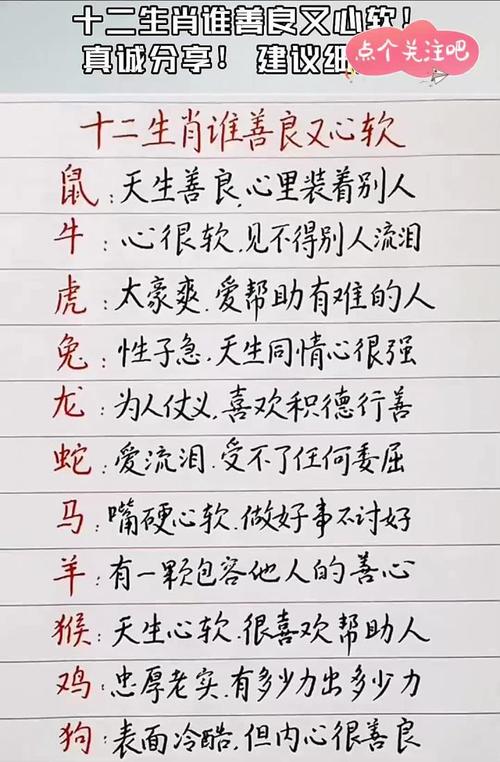 十二生肖谁善良又心软!
真诚分享! 建议细
点个关注吧
十二生肖谁善良又心软
鼠:天生善良,心里装着别人
牛:心很软,见不得别人流泪
虎:太豪爽.爱帮助有难的人
兔:性子急.天生同情心很强
龙:为人仗义,喜欢积德行善
蛇:爱流泪.受不了任何委屈
马:嘴硬心软.做好事不讨好
羊:有一颗包容他人的善心
猴:天生心软.很喜欢帮助人
鸡:忠厚老实.有多少力出多少力
狗:表面冷酷,但内心很善良